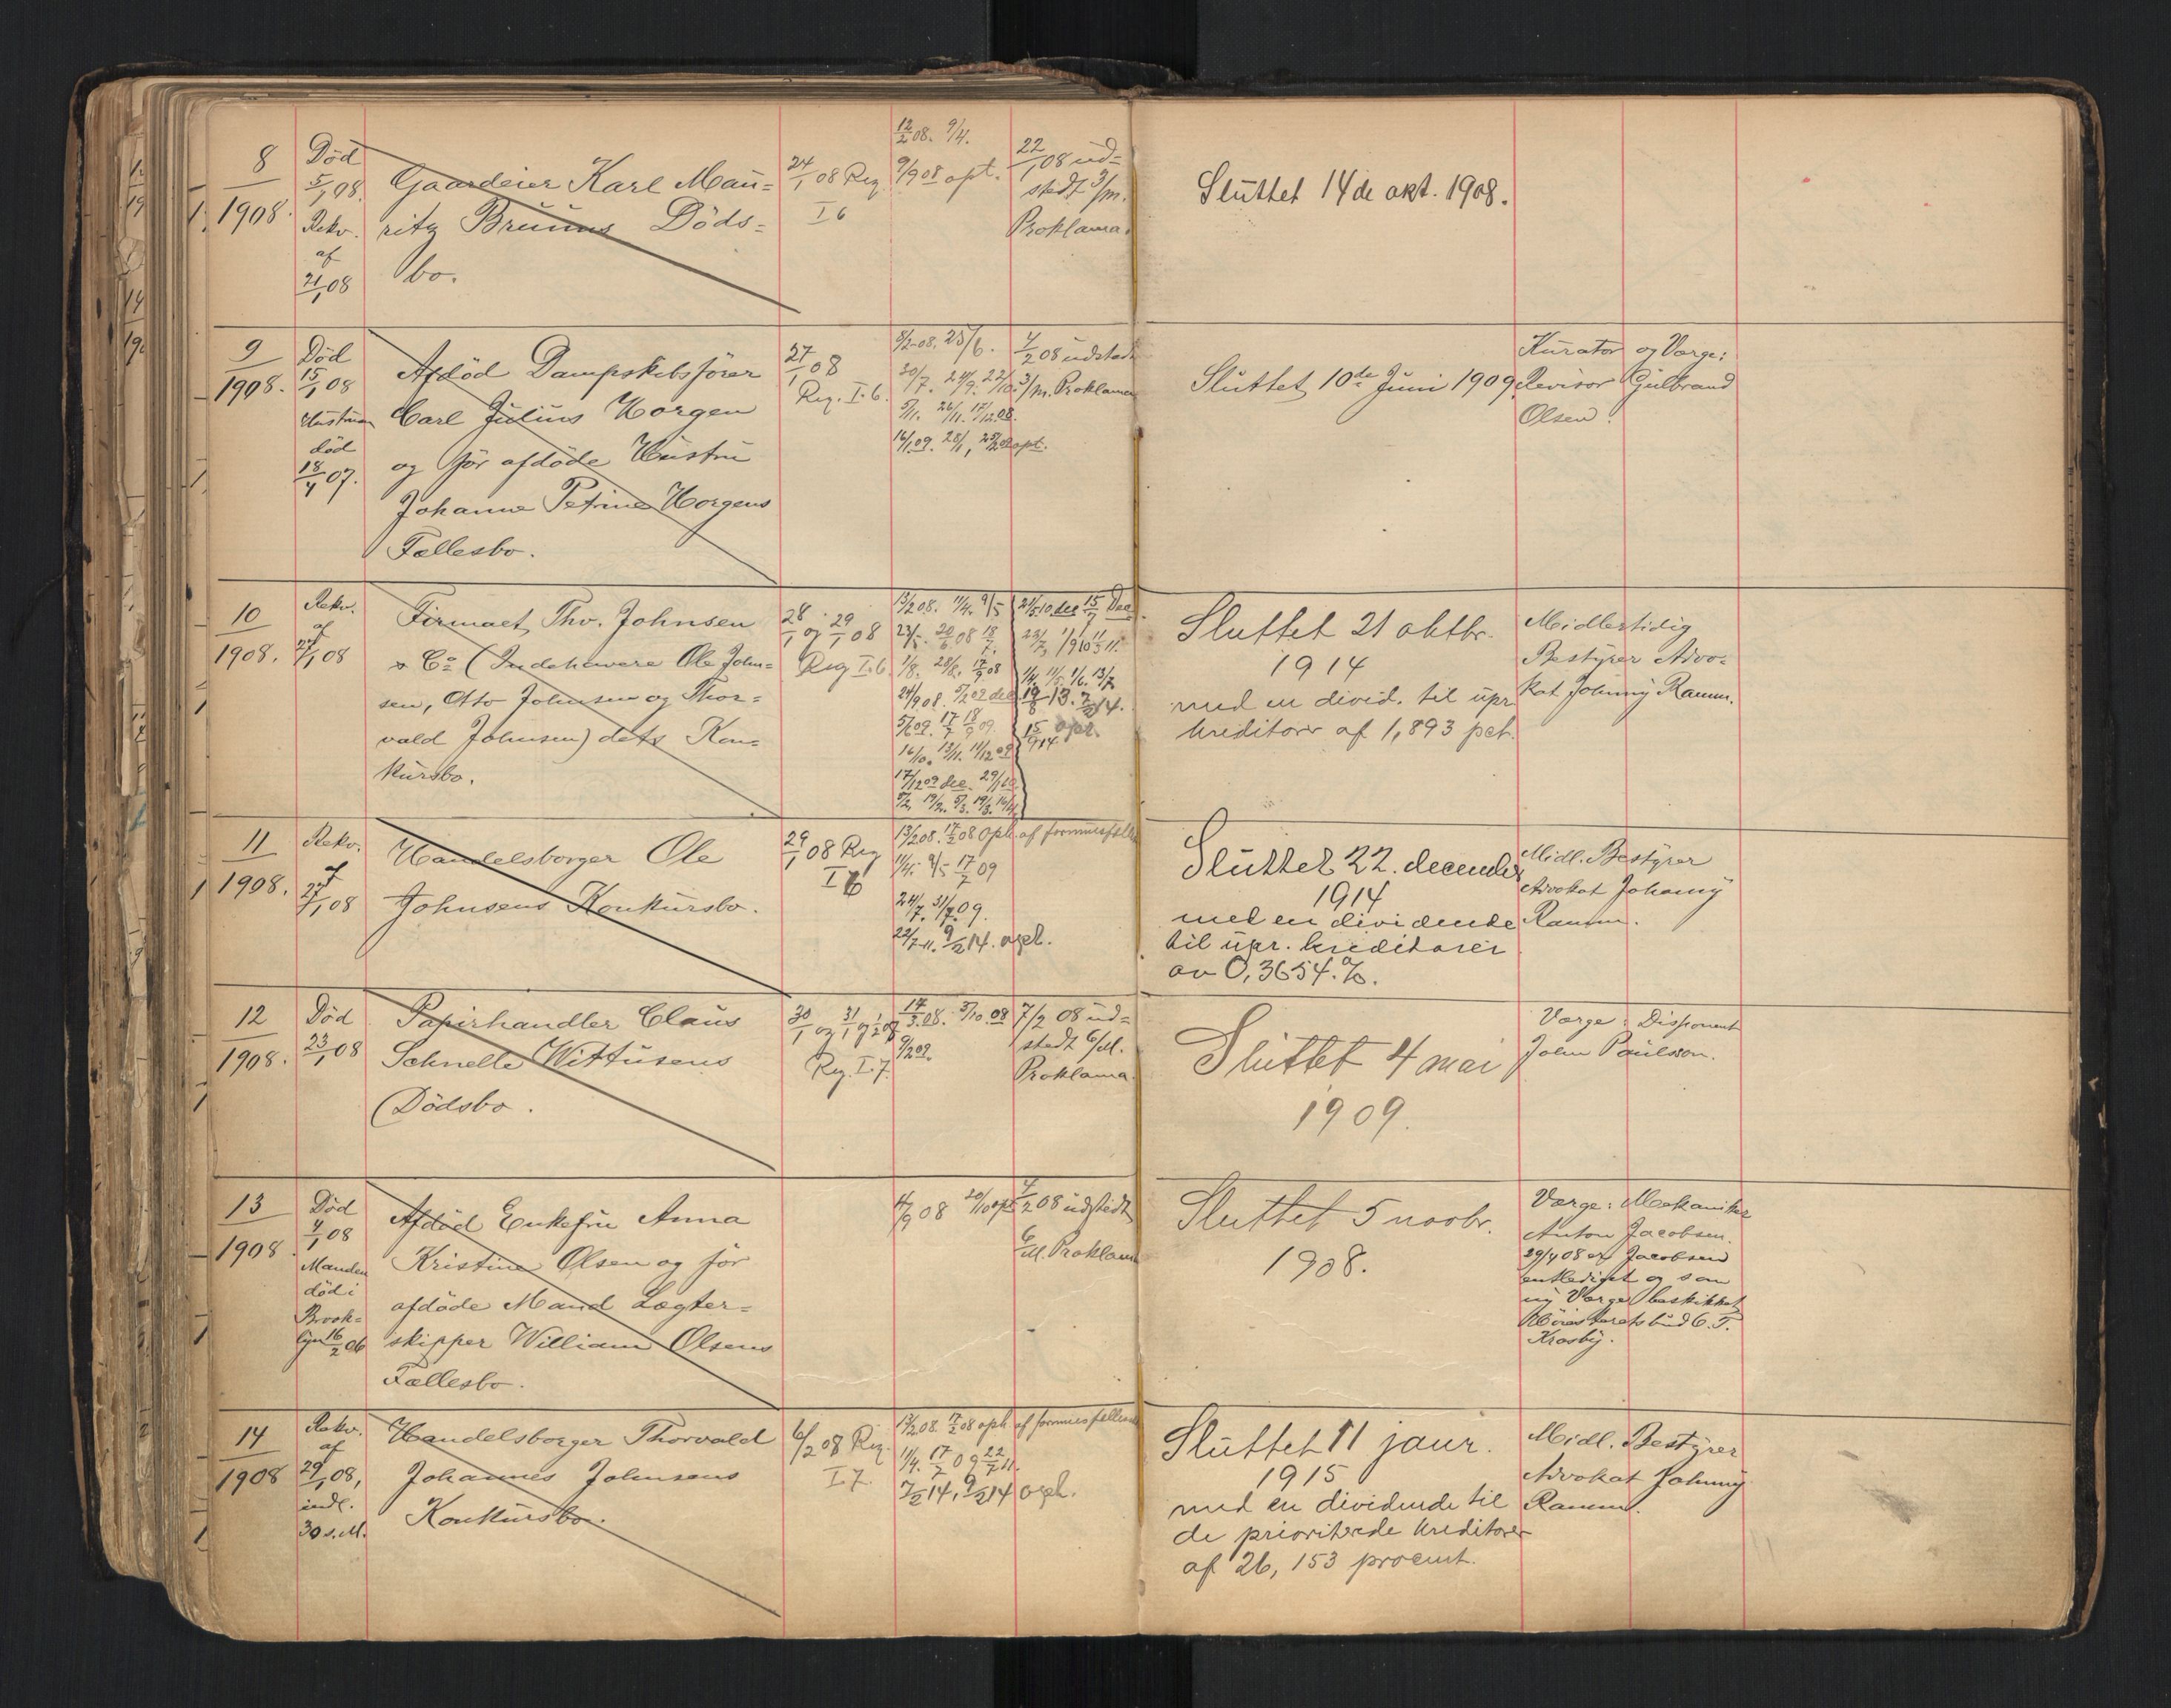 8
1908.
Död
5/1 08.
Rekv.
af
21/1 08
Gaardeier Karl Mau-
ritz Bruuns Döds-
bo.
24/1 08 Reg
I 6
12/2 08. 9/4.
9/9 08 opt.
22/1 08 ud-
stedt 3/m.
Proklama.
Sluttet 14de okt. 1908.
9
1908.
Död
15/1 08
Hustruen
död
18/4 07.
Afdöd Dampskibsförer
Carl Julius Horgen
og för afdöde Hustru
Johanne Petrine Horgens
Fællesbo.
27/1 08
Reg. I. 6.
8/2 08. 25/6.
5/11. 26/11. 17/12 08.
16/1 09. 28/1,
4/2 08 udstedt
3/m. Proklama
Sluttet 10de Juni 1909
Kurator og Værge:
Revisor Gulbrand
Olsen.
10
1908.
Rekv.
af
27/1 08
Firmaet Thv. Johnsen
& Co (Indehavere Ole John-
sen, Otto Johnsen og Thor-
vald Johnsen) dets Kon-
kursbo.
28/1 og 29/1 08
Reg I. 6
13/2 08. 11/4. 9/5
1/8. 28/8. 17/9 08
16/10. 13/11. 11/12 09
17/12 09 dec.
15/9 14 opt.
Sluttet 21 oktbr.
1914
med en divid. til upr.
kreditorer af 1,893 pct.
Midlertidig
Bestyrer Advo-
kat Johnny Ramm.
11
1908.
Rekv.
af
27/1 08
Handelsborger Ole
Johnsens Konkursbo.
29/1 08 Reg
I 6
13/2 08. 17/2 08 oph. af formuesfælle
11/4. 9/5 17/7 09
24/7. 31/7 09.
22/7 11. 9/2 14. opt.
Sluttet 22. december
1914
med en dividende
til upr. kreditorer
av 0,3654 %.
Midl. Bestyrer
Advokat Johnny
Ramm.
12
1908.
Död
23/1 08
Papirhandler Claus
Schnelle Wittusens
Dödsbo.
30/1 og 31/1 og 1/2 08
Reg. I. 7.
14/3 08. 3/10 08
9/2 09.
7/2 08 ud-
stedt 6/M.
Proklama.
Sluttet 4 mai
1909.
Værge: Disponent
John Paulsson.
13
1908.
Död
4/1 08
Manden
död i
Brook-
lyn 16/2 06
Afdöd Enkefru Anna
Kristine Olsen og för
afdöde Mand Lægter-
skipper William Olsens
Fællesbo.
4/9 08 20/10 opt
4/2 08 udstedt
6/M. Proklama
Sluttet 5 novbr.
1908.
Værge: Mekaniker
Anton Jacobsen.
29/4 08 er Jacobsen
entlediget og som
ny Værge beskikket
C. T.
Krosby.
14
1908
Rekv.
af
29/1 08,
indl.
30 s. M.
Handelsborger Thorvald
Johannes Johnsens
Konkursbo.
6/2 08 Reg.
I 7
13/2 08. 17/2 08 oph. af formuesfællesk
11/4. 17/7 09 22/7 11.
7/2 14, 9/2 14 opt.
Sluttet 11 januar.
1915
med en dividende til
de prioriterede kreditorer
af 26,153 procent.
Midl. Bestyrer
Advokat Johnny
Ramm.